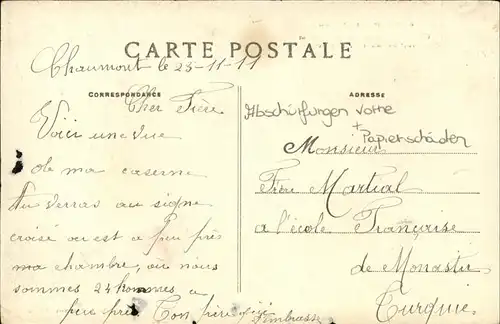 CARTE POSTALE
Chaumont le 23-11-11
CORRESPONDANCE
Cher Frère
Voici une vue
de ma caserne
Tu verras au signe
croisé ou est a peu près
ma chambre, où nous
sommes 24 hommes a
peu près Ton frère qui
t'embrasse
ADRESSE
Abschürfungen vorne
+ Papierschäden
Monsieur
Frère Martial
a l'école Française
de Monastir
Turquie